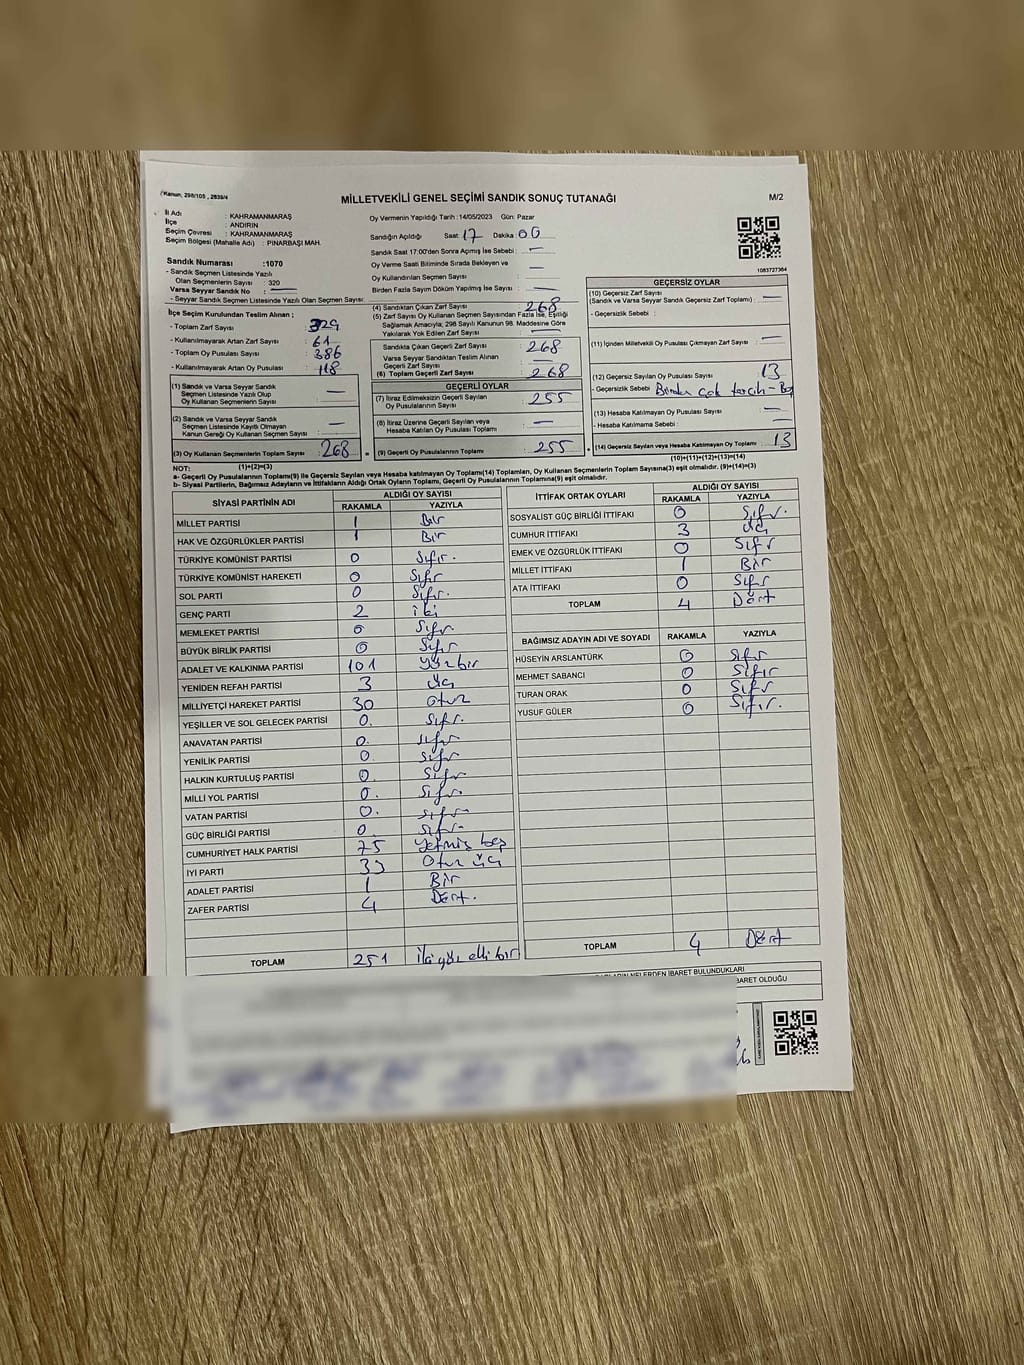 Kanun, 298/105 , 2839/4
MİLLETVEKİLİ GENEL SEÇİMİ SANDIK SONUÇ TUTANAĞI
M/2
İl Adı : KAHRAMANMARAŞ
İlçe : ANDIRIN
Seçim Çevresi : KAHRAMANMARAŞ
Seçim Bölgesi (Mahalle Adı) : PINARBAŞI MAH.
Oy Vermenin Yapıldığı Tarih :14/05/2023 Gün: Pazar
Sandığın Açıldığı Saat: 17 Dakika: 00
Sandık Saat 17:00'den Sonra Açımış İse Sebebi : —
Oy Verme Saati Bitiminde Sırada Bekleyen ve
Oy Kullandırılan Seçmen Sayısı : —
Birden Fazla Sayım Döküm Yapılmış İse Sayısı : —
1083727364
Sandık Numarası :1070
- Sandık Seçmen Listesinde Yazılı
Olan Seçmenlerin Sayısı : 320
Varsa Seyyar Sandık No : —
- Seyyar Sandık Seçmen Listesinde Yazılı Olan Seçmen Sayısı:
İlçe Seçim Kurulundan Teslim Alınan ;
- Toplam Zarf Sayısı : 329
- Kullanılmayarak Artan Zarf Sayısı : 61
- Toplam Oy Pusulası Sayısı : 386
- Kullanılmayarak Artan Oy Pusulası : 118
(1) Sandık ve Varsa Seyyar Sandık
Seçmen Listesinde Yazılı Olup
Oy Kullanan Seçmenlerin Sayısı : —
(2) Sandık ve Varsa Seyyar Sandık
Seçmen Listesinde Kayıtlı Olmayan
Kanun Gereği Oy Kullanan Seçmen Sayısı : —
(3) Oy Kullanan Seçmenlerin Toplam Sayısı : 268
(1)+(2)=(3)
(4) Sandıktan Çıkan Zarf Sayısı : 268
(5) Zarf Sayısı Oy Kullanan Seçmen Sayısından Fazla İse, Eşitliği
Sağlamak Amacıyla; 298 Sayılı Kanunun 98. Maddesine Göre
Yakılarak Yok Edilen Zarf Sayısı : —
Sandıkta Çıkan Geçerli Zarf Sayısı : 268
Varsa Seyyar Sandıktan Teslim Alınan
Geçerli Zarf Sayısı : —
(6) Toplam Geçerli Zarf Sayısı : 268
GEÇERLİ OYLAR
(7) İtiraz Edilmeksizin Geçerli Sayılan
Oy Pusulalarının Sayısı : 255
(8) İtiraz Üzerine Geçerli Sayılan veya
Hesaba Katılan Oy Pusulası Toplamı : —
(9) Geçerli Oy Pusulalarının Toplamı : 255
GEÇERSİZ OYLAR
(10) Geçersiz Zarf Sayısı
(Sandık ve Varsa Seyyar Sandık Geçersiz Zarf Toplamı) : —
- Geçersizlik Sebebi :
(11) İçinden Milletvekili Oy Pusulası Çıkmayan Zarf Sayısı : —
(12) Geçersiz Sayılan Oy Pusulası Sayısı : 13
- Geçersizlik Sebebi : Birden çok tercih - Boş
(13) Hesaba Katılmayan Oy Pusulası Sayısı : —
- Hesaba Katılmama Sebebi : —
(14) Geçersiz Sayılan veya Hesaba Katılmayan Oy Toplamı : 13
(10)+(11)+(12)+(13)=(14)
NOT:
a- Geçerli Oy Pusulalarının Toplamı(9) ile Geçersiz Sayılan veya Hesaba katılmayan Oy Toplamı(14) Toplamları, Oy Kullanan Seçmenlerin Toplam Sayısına(3) eşit olmalıdır. (9)+(14)=(3)
b- Siyasi Partilerin, Bağımsız Adayların ve İttifakların Aldığı Ortak Oyların Toplamı, Geçerli Oy Pusulalarının Toplamına(9) eşit olmalıdır.
SİYASİ PARTİNİN ADI ALDIĞI OY SAYISI
RAKAMLA YAZIYLA
MİLLET PARTİSİ 1 Bir
HAK VE ÖZGÜRLÜKLER PARTİSİ 1 Bir
TÜRKİYE KOMÜNİST PARTİSİ 0 Sıfır.
TÜRKİYE KOMÜNİST HAREKETİ 0 Sıfır
SOL PARTİ 0 Sıfır.
GENÇ PARTİ 2 iki
MEMLEKET PARTİSİ 0 Sıfır
BÜYÜK BİRLİK PARTİSİ 0 Sıfır
ADALET VE KALKINMA PARTİSİ 101 Yüz bir
YENİDEN REFAH PARTİSİ 3 Üç
MİLLİYETÇİ HAREKET PARTİSİ 30 Otuz
YEŞİLLER VE SOL GELECEK PARTİSİ 0. Sıfır.
ANAVATAN PARTİSİ 0. Sıfır
YENİLİK PARTİSİ 0. Sıfır
HALKIN KURTULUŞ PARTİSİ 0. Sıfır
MİLLİ YOL PARTİSİ 0. Sıfır
VATAN PARTİSİ 0. Sıfır
GÜÇ BİRLİĞİ PARTİSİ 0. Sıfır
CUMHURİYET HALK PARTİSİ 75 Yetmiş beş
İYİ PARTİ 33 Otuz üç
ADALET PARTİSİ 1 Bir
ZAFER PARTİSİ 4 Dört.
TOPLAM 251 İki yüz elli bir
İTTİFAK ORTAK OYLARI ALDIĞI OY SAYISI
RAKAMLA YAZIYLA
SOSYALİST GÜÇ BİRLİĞİ İTTİFAKI 0 Sıfır.
CUMHUR İTTİFAKI 3 Üç
EMEK VE ÖZGÜRLÜK İTTİFAKI 0 Sıfır
MİLLET İTTİFAKI 1 Bir
ATA İTTİFAKI 0 Sıfır
TOPLAM 4 Dört
BAĞIMSIZ ADAYIN ADI VE SOYADI RAKAMLA YAZIYLA
HÜSEYİN ARSLANTÜRK 0 Sıfır
MEHMET SABANCI 0 Sıfır
TURAN ORAK 0 Sıfır
YUSUF GÜLER 0 Sıfır.
TOPLAM 4 Dört
NELERDEN İBARET BULUNDUKLARI
İBARET OLDUĞU